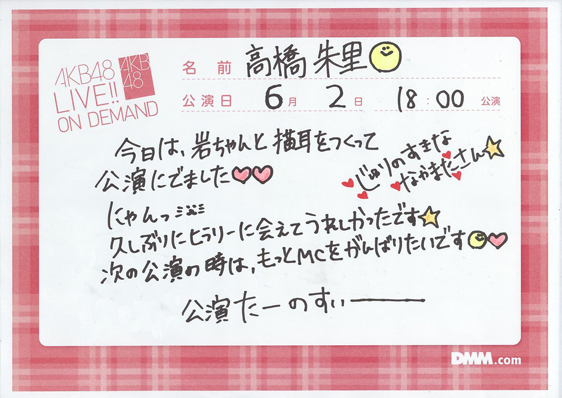 AKB48
LIVE!!
ON DEMAND
AKB
48
名前 高橋朱里
公演日 6月 2日 18:00 公演
今日は、岩ちゃんと猫耳をつくって
公演にでました♡♡
じゅりのすきな
なかまたさん☆
にゃんっ
久しぶりにヒラリーに会えてうれしかったです☆
次の公演の時は、もっとMCをがんばりたいです♡
公演たーのすぃーーー
DMM.com